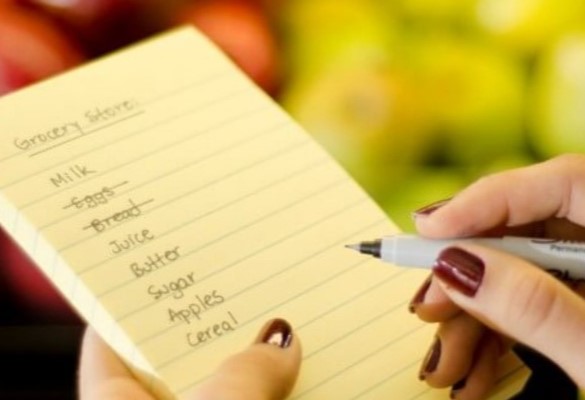 Grocery Store:
Milk
Eggs
Bread
Juice
Butter
Sugar
Apples
Cereal